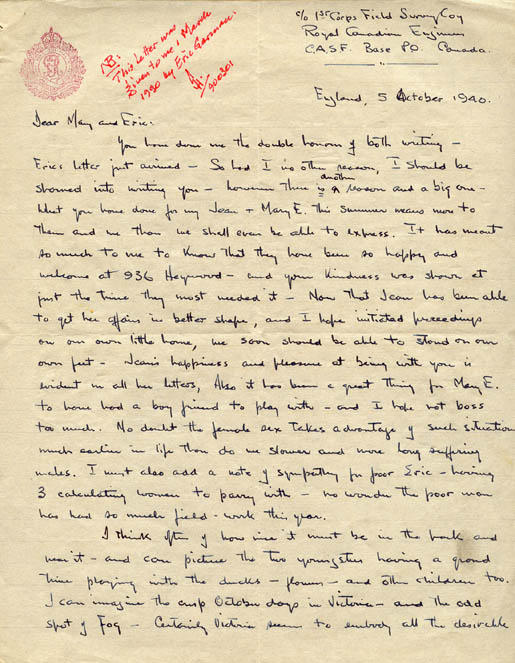 c/o 1st Corps Field Survey Coy
Royal Canadian Engineers
C.A.S.F. Base P.O. Canada.
NB:
This letter was
given to me 1 March
1990 by Eric Garman.
900301
England, 5 October 1940.
Dear May and Eric:
You have done me the double honour of both writing –
Eric's letter just arrived – So had I no other reason, I should be
shamed into writing you – however there is another reason and a big one –
What you have done for my Jean + Mary E. this summer means more to
them and me than we shall ever be able to express. It has meant
so much to me to know that they have been so happy and
welcome at 936 Heywood – and your kindness was shown at
just the time they most needed it – Now that Jean has been able
to get her affairs in better shape, and I hope initiated proceedings
on our own little home, we soon should be able to stand on our
own feet – Jean's happiness and pleasure at being with you is
evident in all her letters, Also it has been a great thing for Mary E.
to have had a boy friend to play with – and I hope not boss
too much. No doubt the female sex takes advantage of such situation
much earlier in life than do we slower and more long suffering
males. I must also add a note of sympathy for poor Eric – having
3 calculating women to parry with – no wonder the poor man
has had so much field-work this year.
I think often of how nice it must be in the park and
near it – and can picture the two youngsters having a grand
time playing with the ducks – flowers – and other children too.
I can imagine the crisp October days in Victoria – and the odd
spot of Fog – Certainly Victoria seems to embody all the desirable